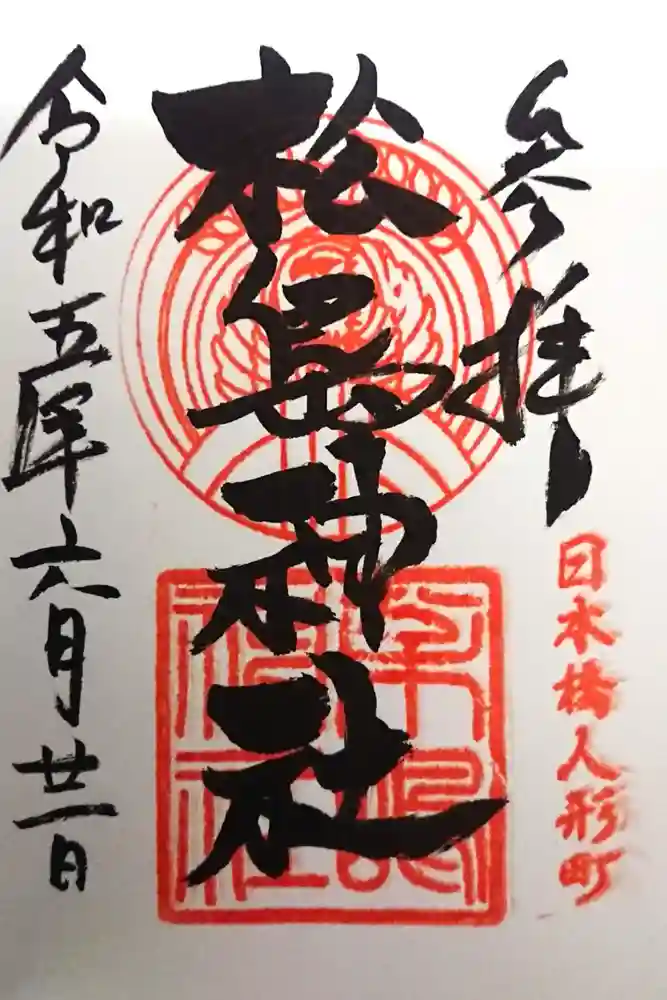 參拝
日本橋人形町
松島神社
令和五年六月廿一日